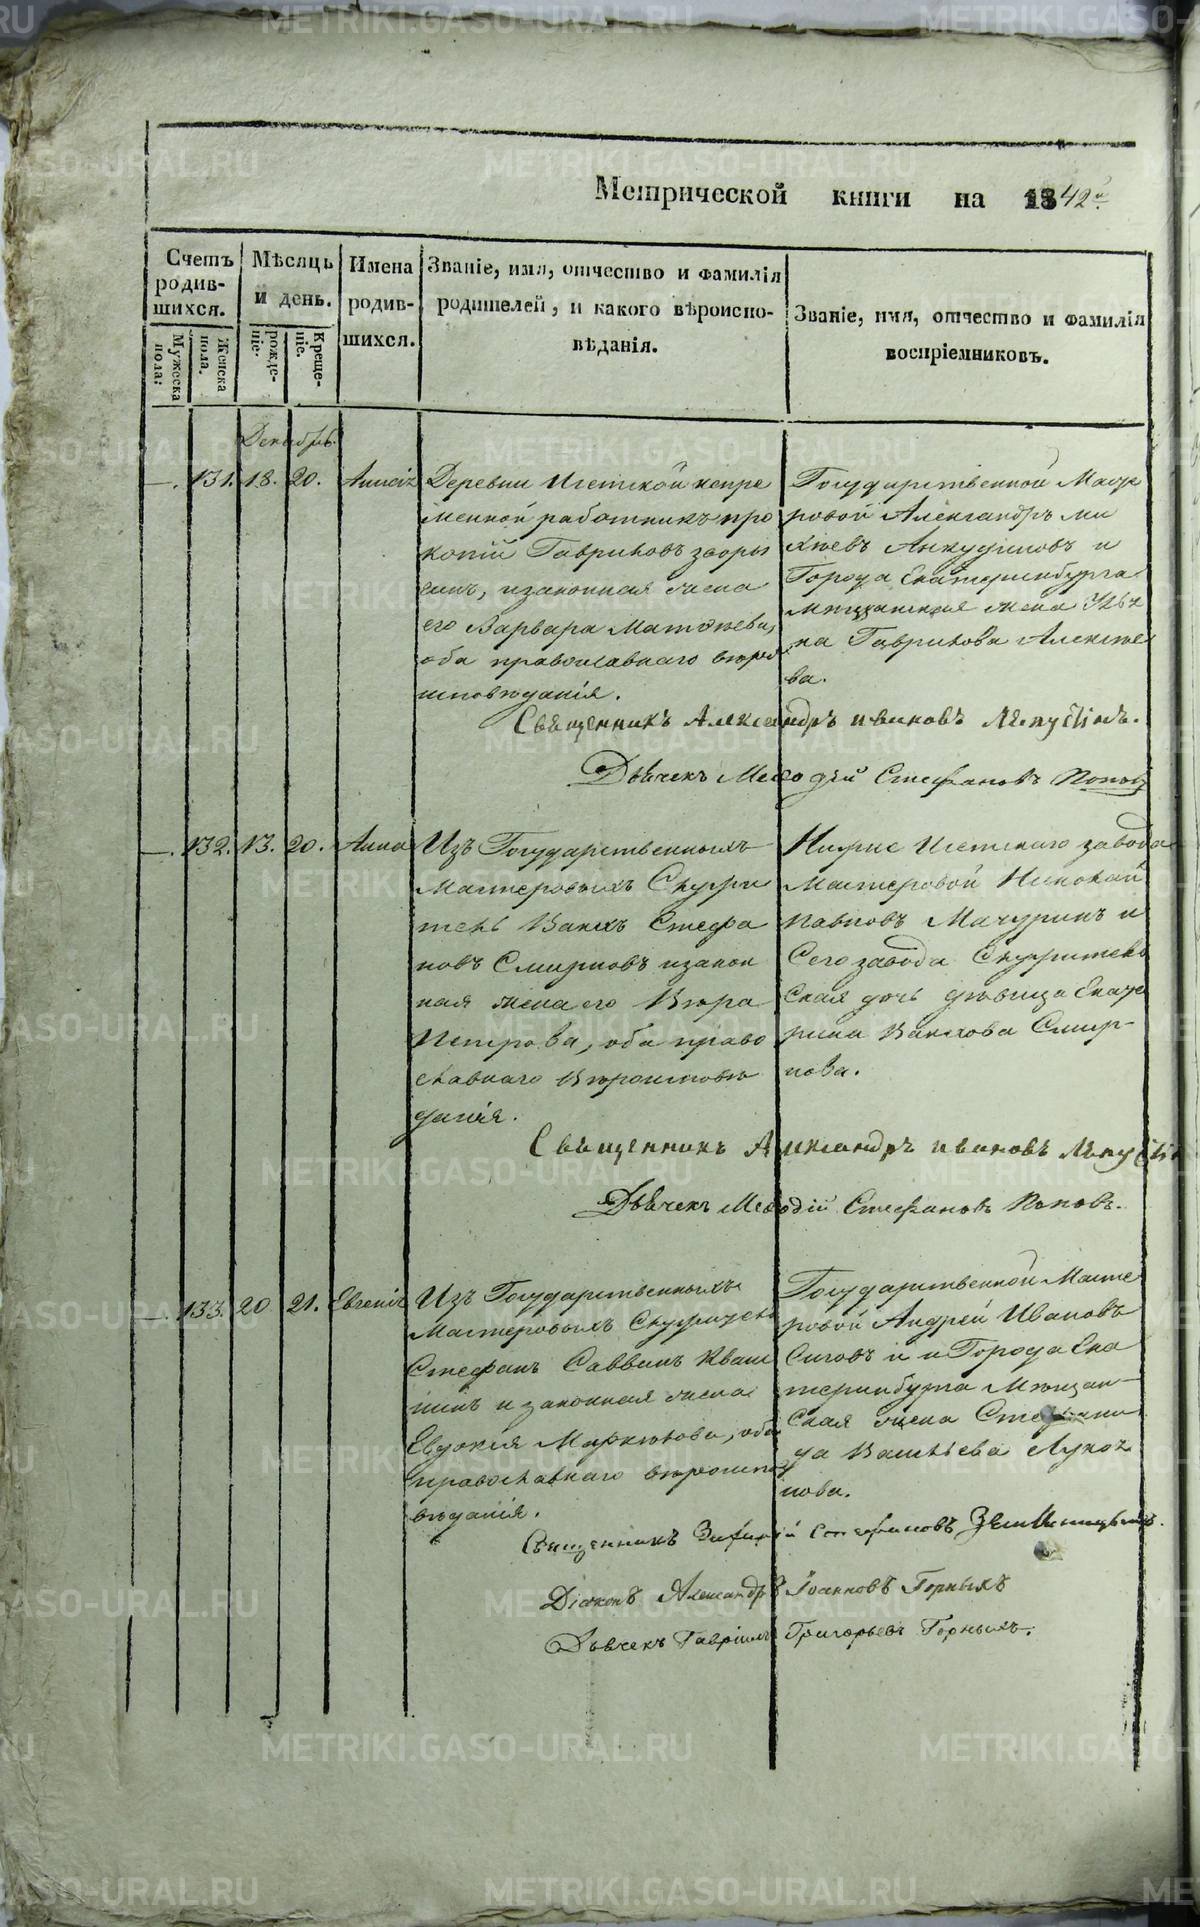 Метрической книги на 1842й.
Счетъ родив-шихся.
Мужеска пола.
Женска пола.
Мѣсяцъ и день.
рожде-ніе.
Креще-ніе.
Имена родив-шихся.
Званіе, имя, отчество и фамилія
родителей, и какого вѣроиспо-
вѣданія.
Званіе, имя, отчество и фамилія
воспріемниковъ.
Декабрь
—. 131. 18. 20.
Деревни Исетской непре
менной работникъ про
копій Гавриловъ
, изаконная жена
его Варвара Матѳѣева,
оба православнаго вѣро
исповѣданія.
Государственной Масте
ровой Александръ Ми
Анкудиновъ и
Города Екатеринбурга
мѣщанская жена Улья
на Гаврилова Алексѣе
ва.
Священникъ Александръ Ивановъ
Дьячекъ Меѳодій Стефановъ Поповъ
—. 132. 13. 20. Анна
Изъ Государственныхъ
Мастеровыхъ
Стефа
новъ Смирновъ изакон
ная жена его Вѣра
Петрова, оба право
славнаго Вѣроисповѣ
данія.
Нижне Исетскаго завода
Мастеровой Николай
Павловъ Мачуринъ и
Сего завода
ская дочь дѣвица Екате
рина Смир-
нова.
Священникъ Александръ Ивановъ
Дьячекъ Меѳодій Стефановъ Поповъ.
—. 133. 20. 21. Евгенія
Изъ Государственныхъ
Мастеровыхъ
Стефанъ Саввинъ Кваш
нинъ и законная жена
Евдокія Маркелова, оба
православнаго вѣроиспо
вѣданія.
Государственной Масте
ровой Андрей Ивановъ
Сиговъ и Города Ека
теринбурга Мѣщан-
ская жена Стефани
да Васильева
нова.
Священникъ Стефановъ Земляницынъ.
Діаконъ Александръ Іоанновъ Горныхъ
Дьячекъ Гавріилъ Григорьевъ Горныхъ.
METRIKI.GASO-URAL.RU